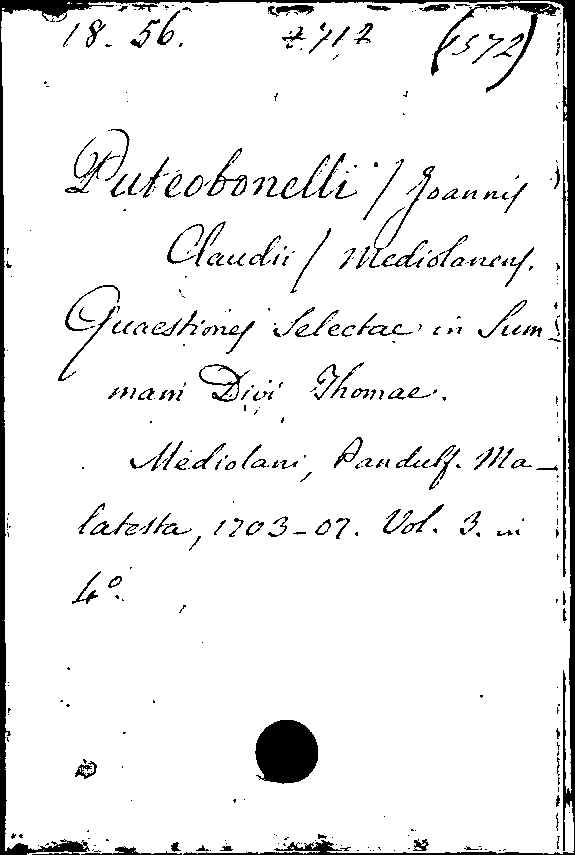 18. 56. (1572)
Puteobonelli / Joannis
Claudii / Mediolanens.
Quaestiones Selectae in Sum-
mam Divi Thomae.
Mediolani, Pandulf. Ma-
latesta, 1703-07. Vol. 3. in
4°.